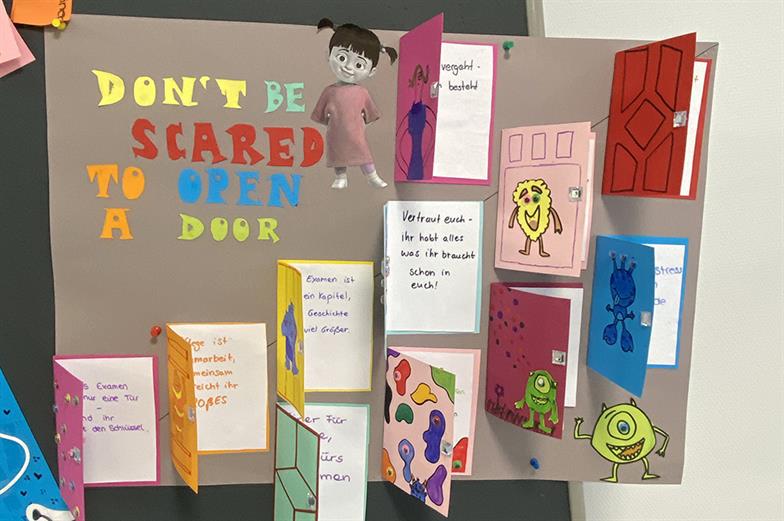 DON'T BE
SCARED
TO OPEN
A DOOR
vergeht -
besteht
Vertraut euch -
ihr habt alles
was ihr braucht
schon in
euch!
Examen ist
ein Kapitel,
Geschichte
viel Größer.
ist
ihr
Examen
nur eine Tür
-
ihr
den Schlüssel.
Für
stress